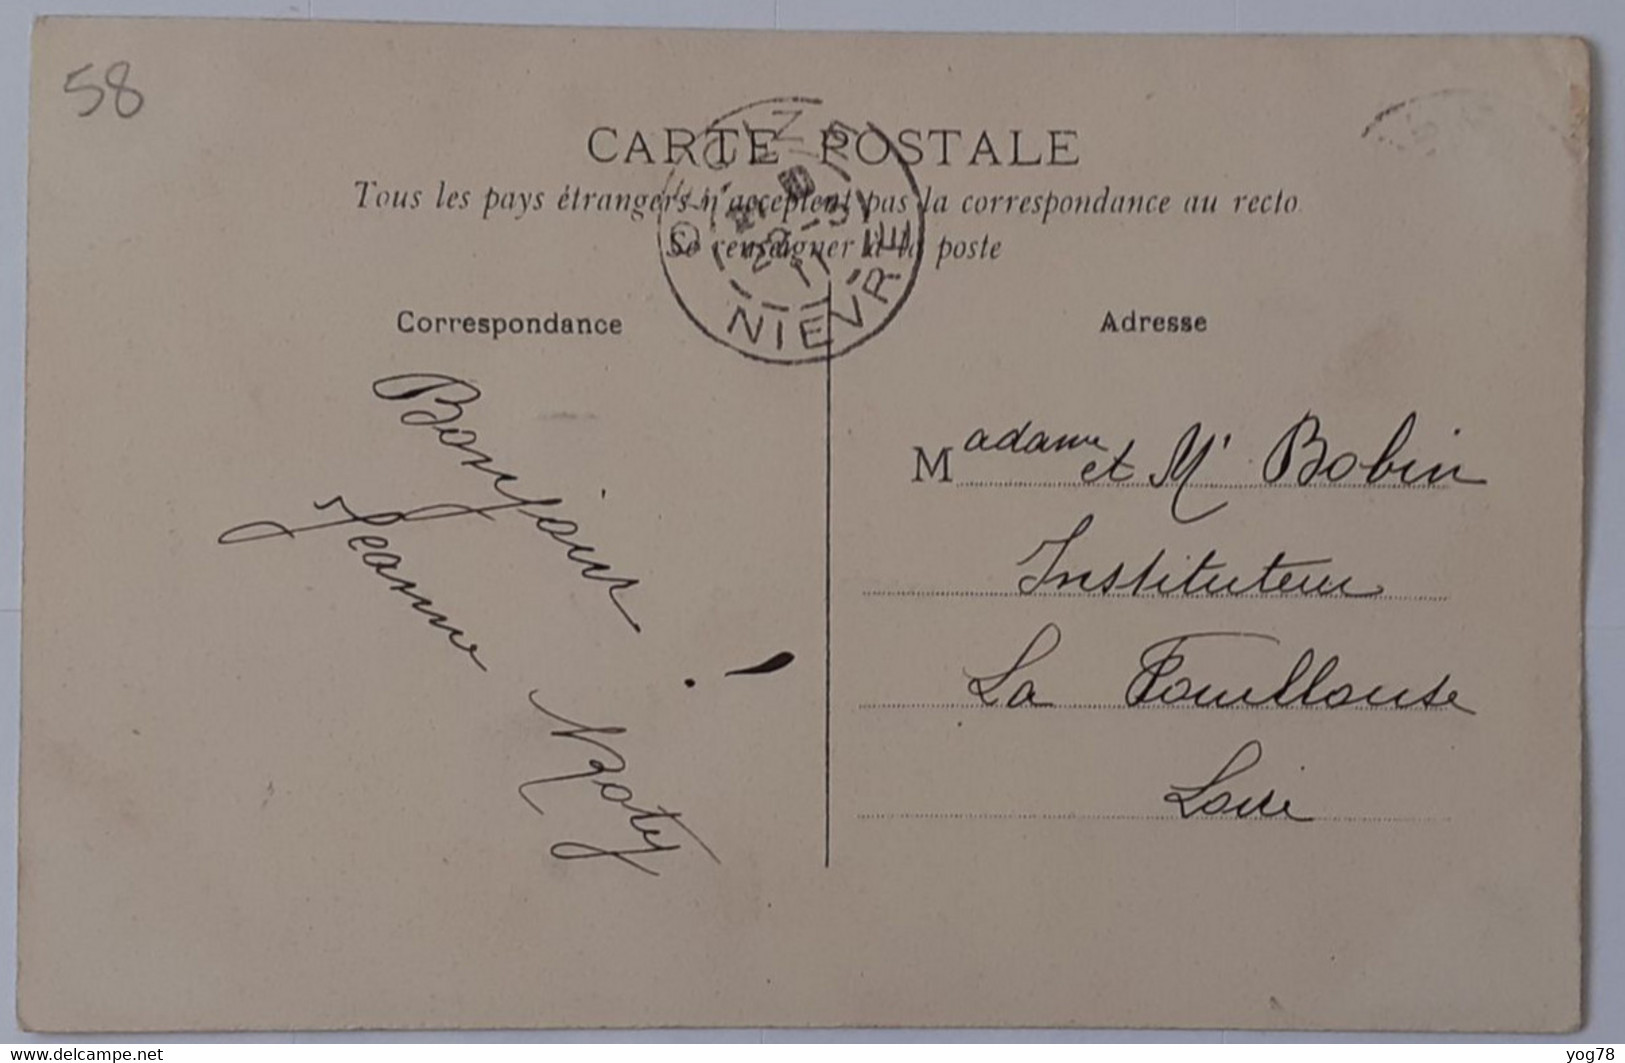 58
CARTE POSTALE
Tous les pays étrangers n'acceptent pas la correspondance au recto
Se renseigner à la poste
NIEVRE
Correspondance
Adresse
Bonjour !
Jeanne
Madame et Mr Bobin
Instituteur
La Fouillouse
Loire
www.delcampe.net
yog78